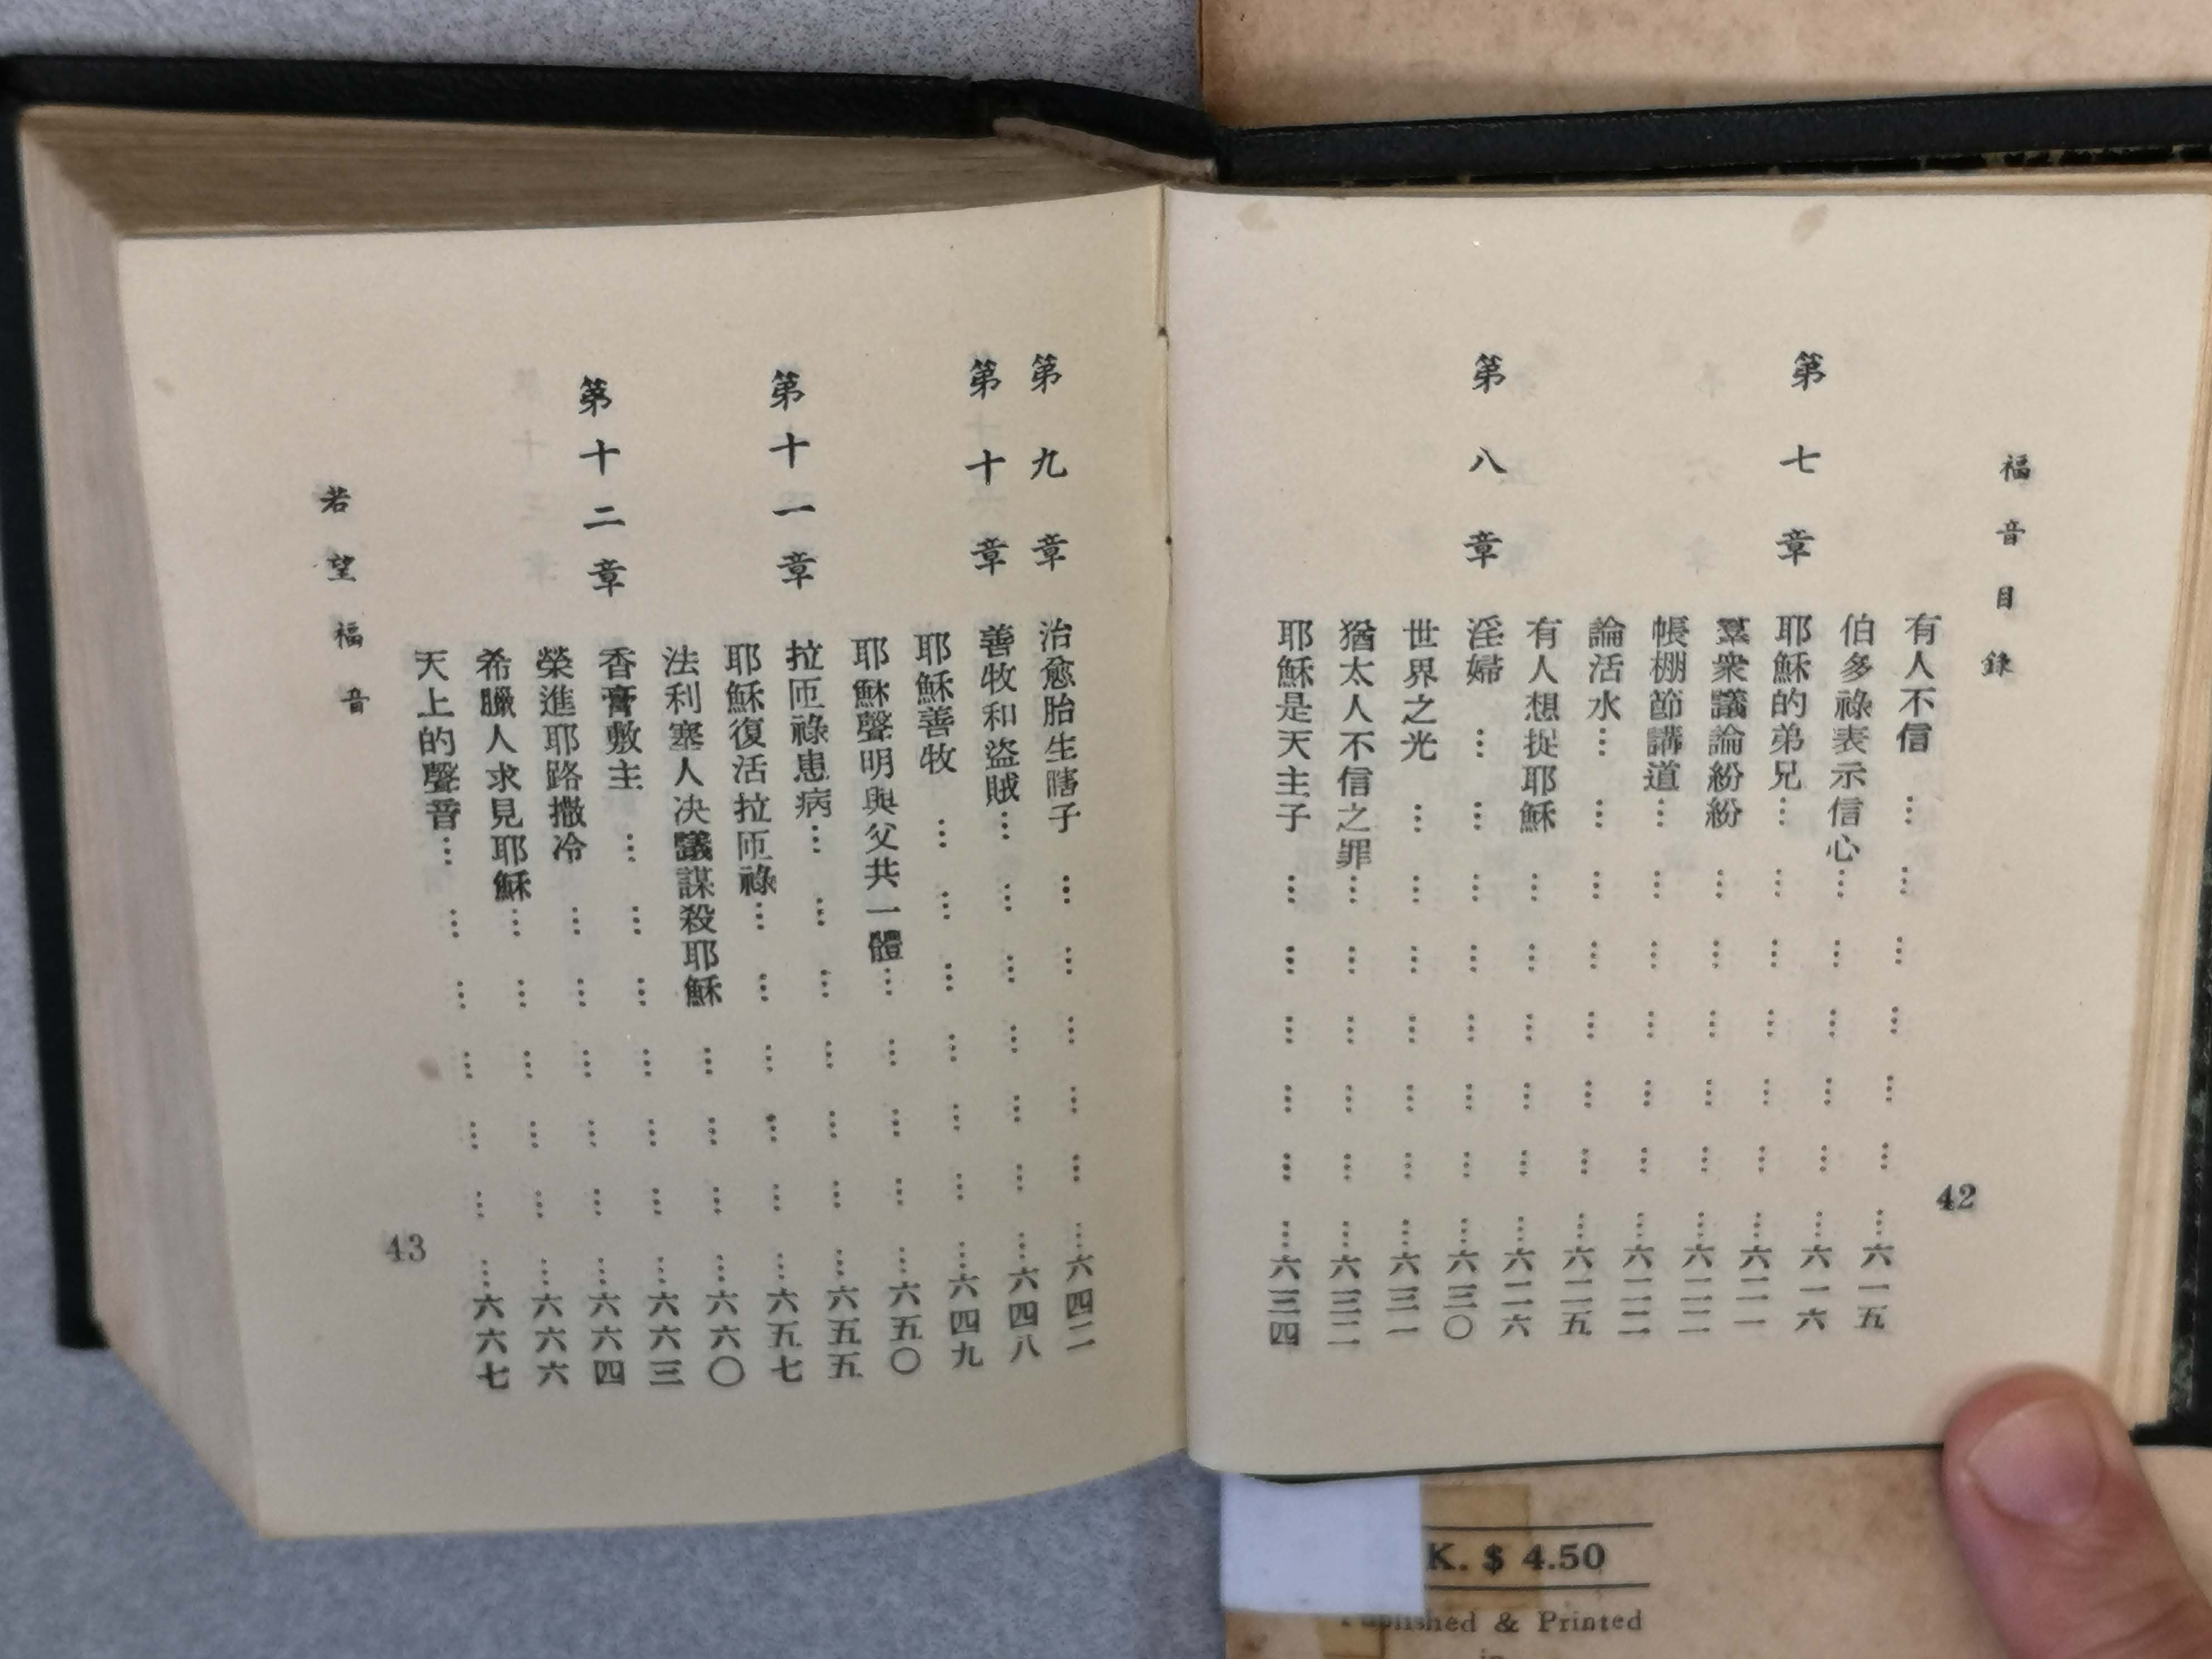 福音目錄
42
有人不信……………………六一五
伯多祿表示信心………………六一六
第七章 耶穌的弟兄……………………六二一
羣衆議論紛紛………………六二二
帳棚節講道……………………六二二
論活水………………………六二五
有人想捉耶穌………………六二六
第八章 淫婦…………………………六三〇
世界之光……………………六三一
猶太人不信之罪………………六三二
耶穌是天主子………………六三四
第九章 治愈胎生瞎子………………六四二
第十章 善牧和盜賊……………………六四八
耶穌善牧……………………六四九
耶穌聲明與父共一體……………六五〇
第十一章 拉匝祿患病……………………六五五
耶穌復活拉匝祿………………六五七
法利塞人決議謀殺耶穌…………六六〇
第十二章 香膏敷主……………………六六三
榮進耶路撒冷………………六六四
希臘人求見耶穌………………六六六
天上的聲音……………………六六七
若望福音
43
K. $ 4.50
Published & Printed
in